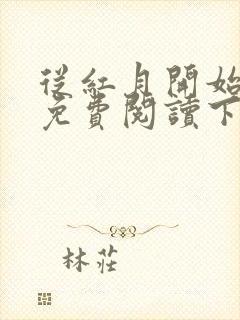 從紅月開始
免費閱讀下
林莊